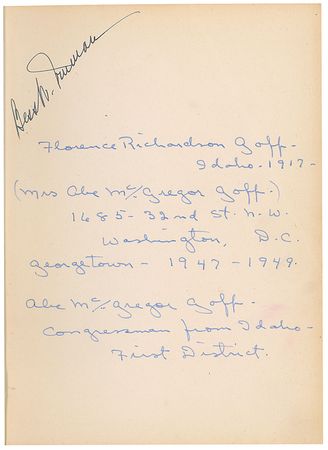 Bess W. Truman
Florence Richardson Goff-
Idaho-1917-
(Mrs Abe McGregor Goff-)
1685-32nd St. N.W.
Washington, D.C.
Georgetown- 1947-1949.
Abe McGregor Goff-
Congressman from Idaho-
First District.